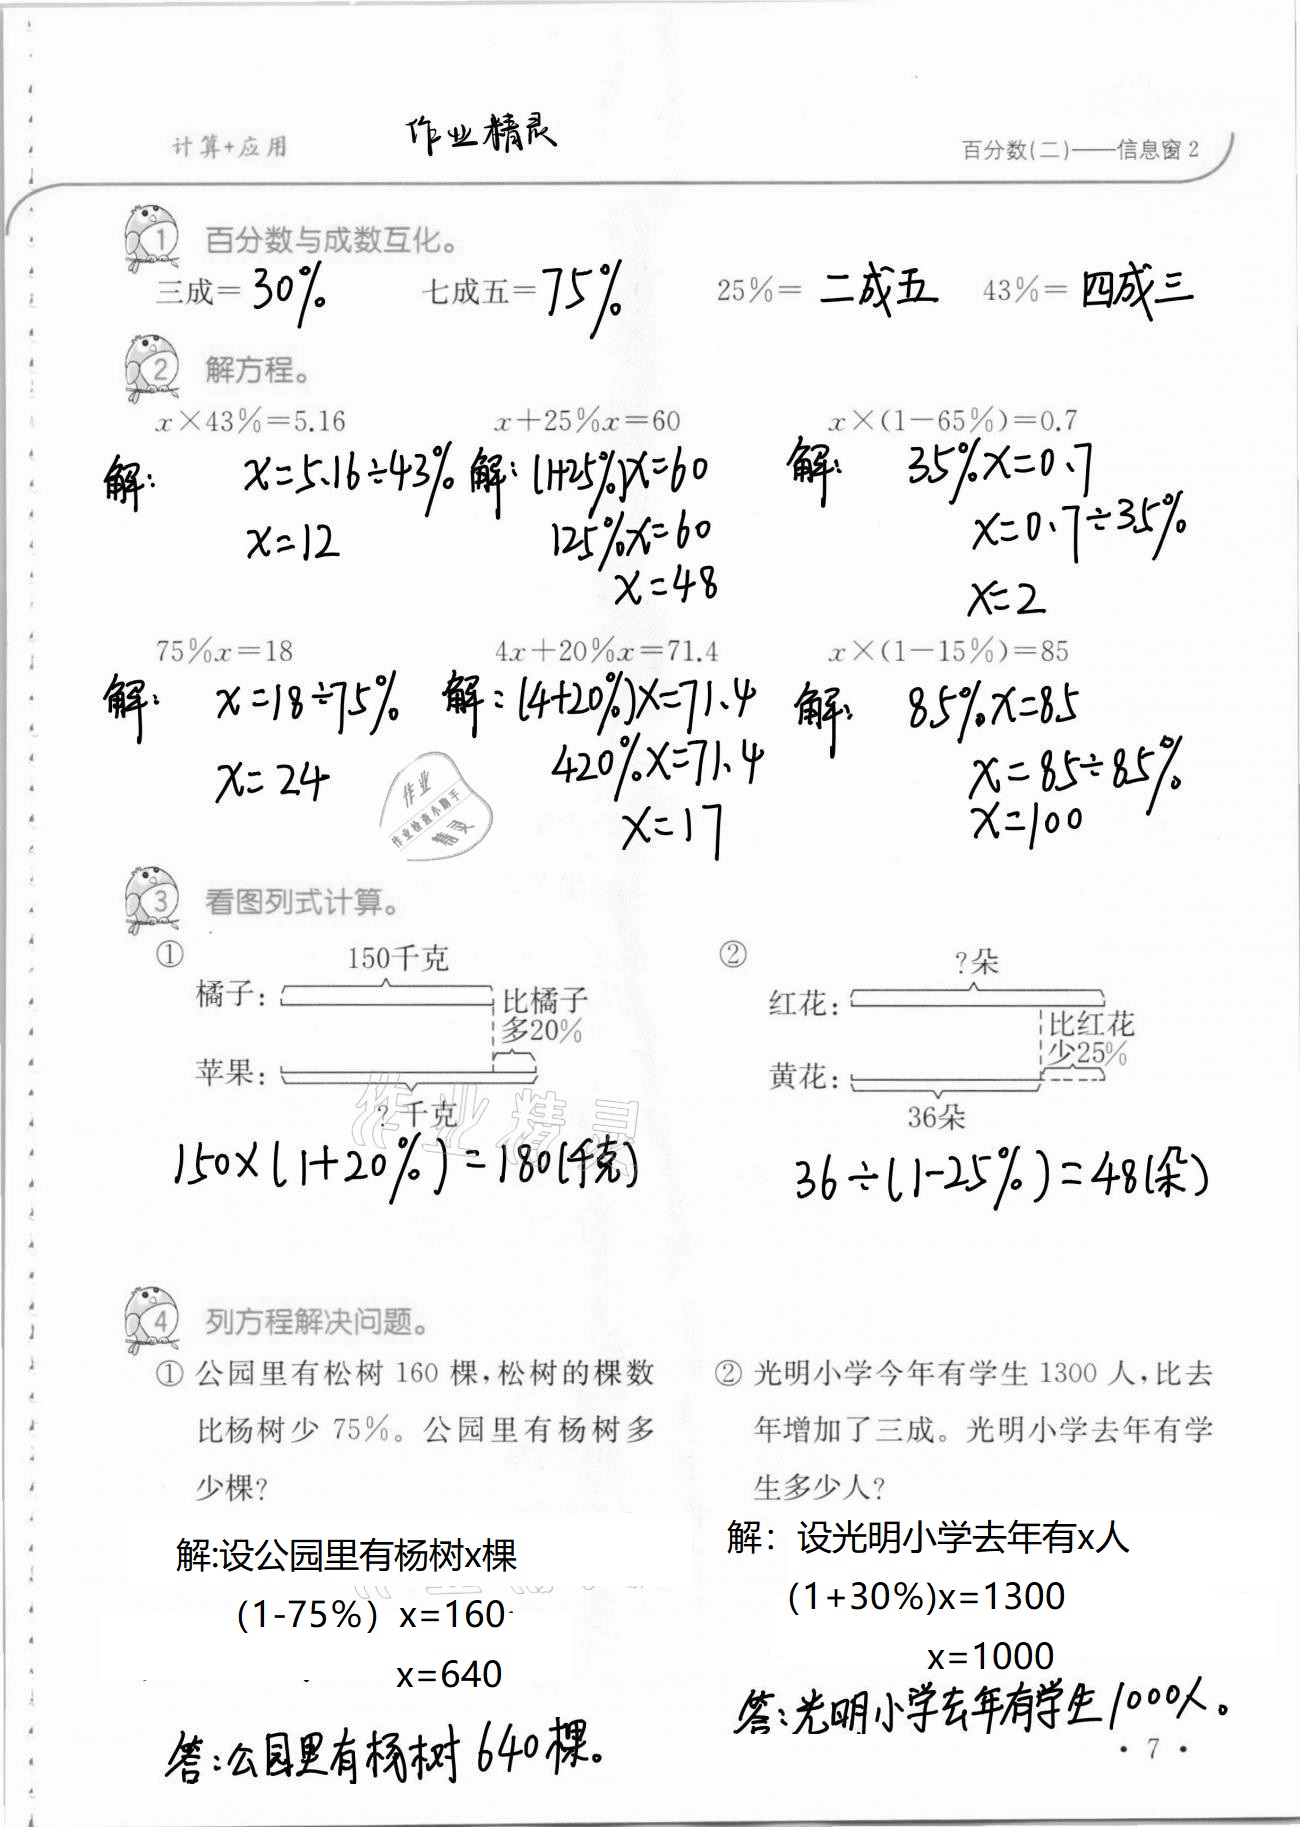 计算+应用 作业精灵 百分数(二)——信息窗2
1 百分数与成数互化。
三成=30% 七成五=75% 25%=二成五 43%=四成三
2 解方程。
x×43%=5.16 x+25%x=60 x×(1-65%)=0.7
解: x=5.16÷43% 解:(1+25%)x=60 解: 35%x=0.7
x=12 125%x=60 x=0.7÷35%
x=48 x=2
75%x=18 4x+20%x=71.4 x×(1-15%)=85
解: x=18÷75% 解:(4+20%)x=71.4 解: 85%x=85
x=24 420%x=71.4 x=85÷85%
x=17 x=100
作业
作业检查小助手
精灵
3 看图列式计算。
① 150千克 ② ?朵
橘子: 比橘子 红花: 比红花
多20% 少25%
苹果: 黄花:
?千克 36朵
作业精灵
150×(1+20%)=180(千克) 36÷(1-25%)=48(朵)
4 列方程解决问题。
① 公园里有松树160棵,松树的棵数 ② 光明小学今年有学生1300人,比去
比杨树少75%。公园里有杨树多 年增加了三成。光明小学去年有学
少棵? 生多少人?
解:设公园里有杨树x棵 解：设光明小学去年有x人
(1-75%）x=160 (1+30%)x=1300
x=640 x=1000
答:公园里有杨树640棵。 答:光明小学去年有学生1000人。
·7·